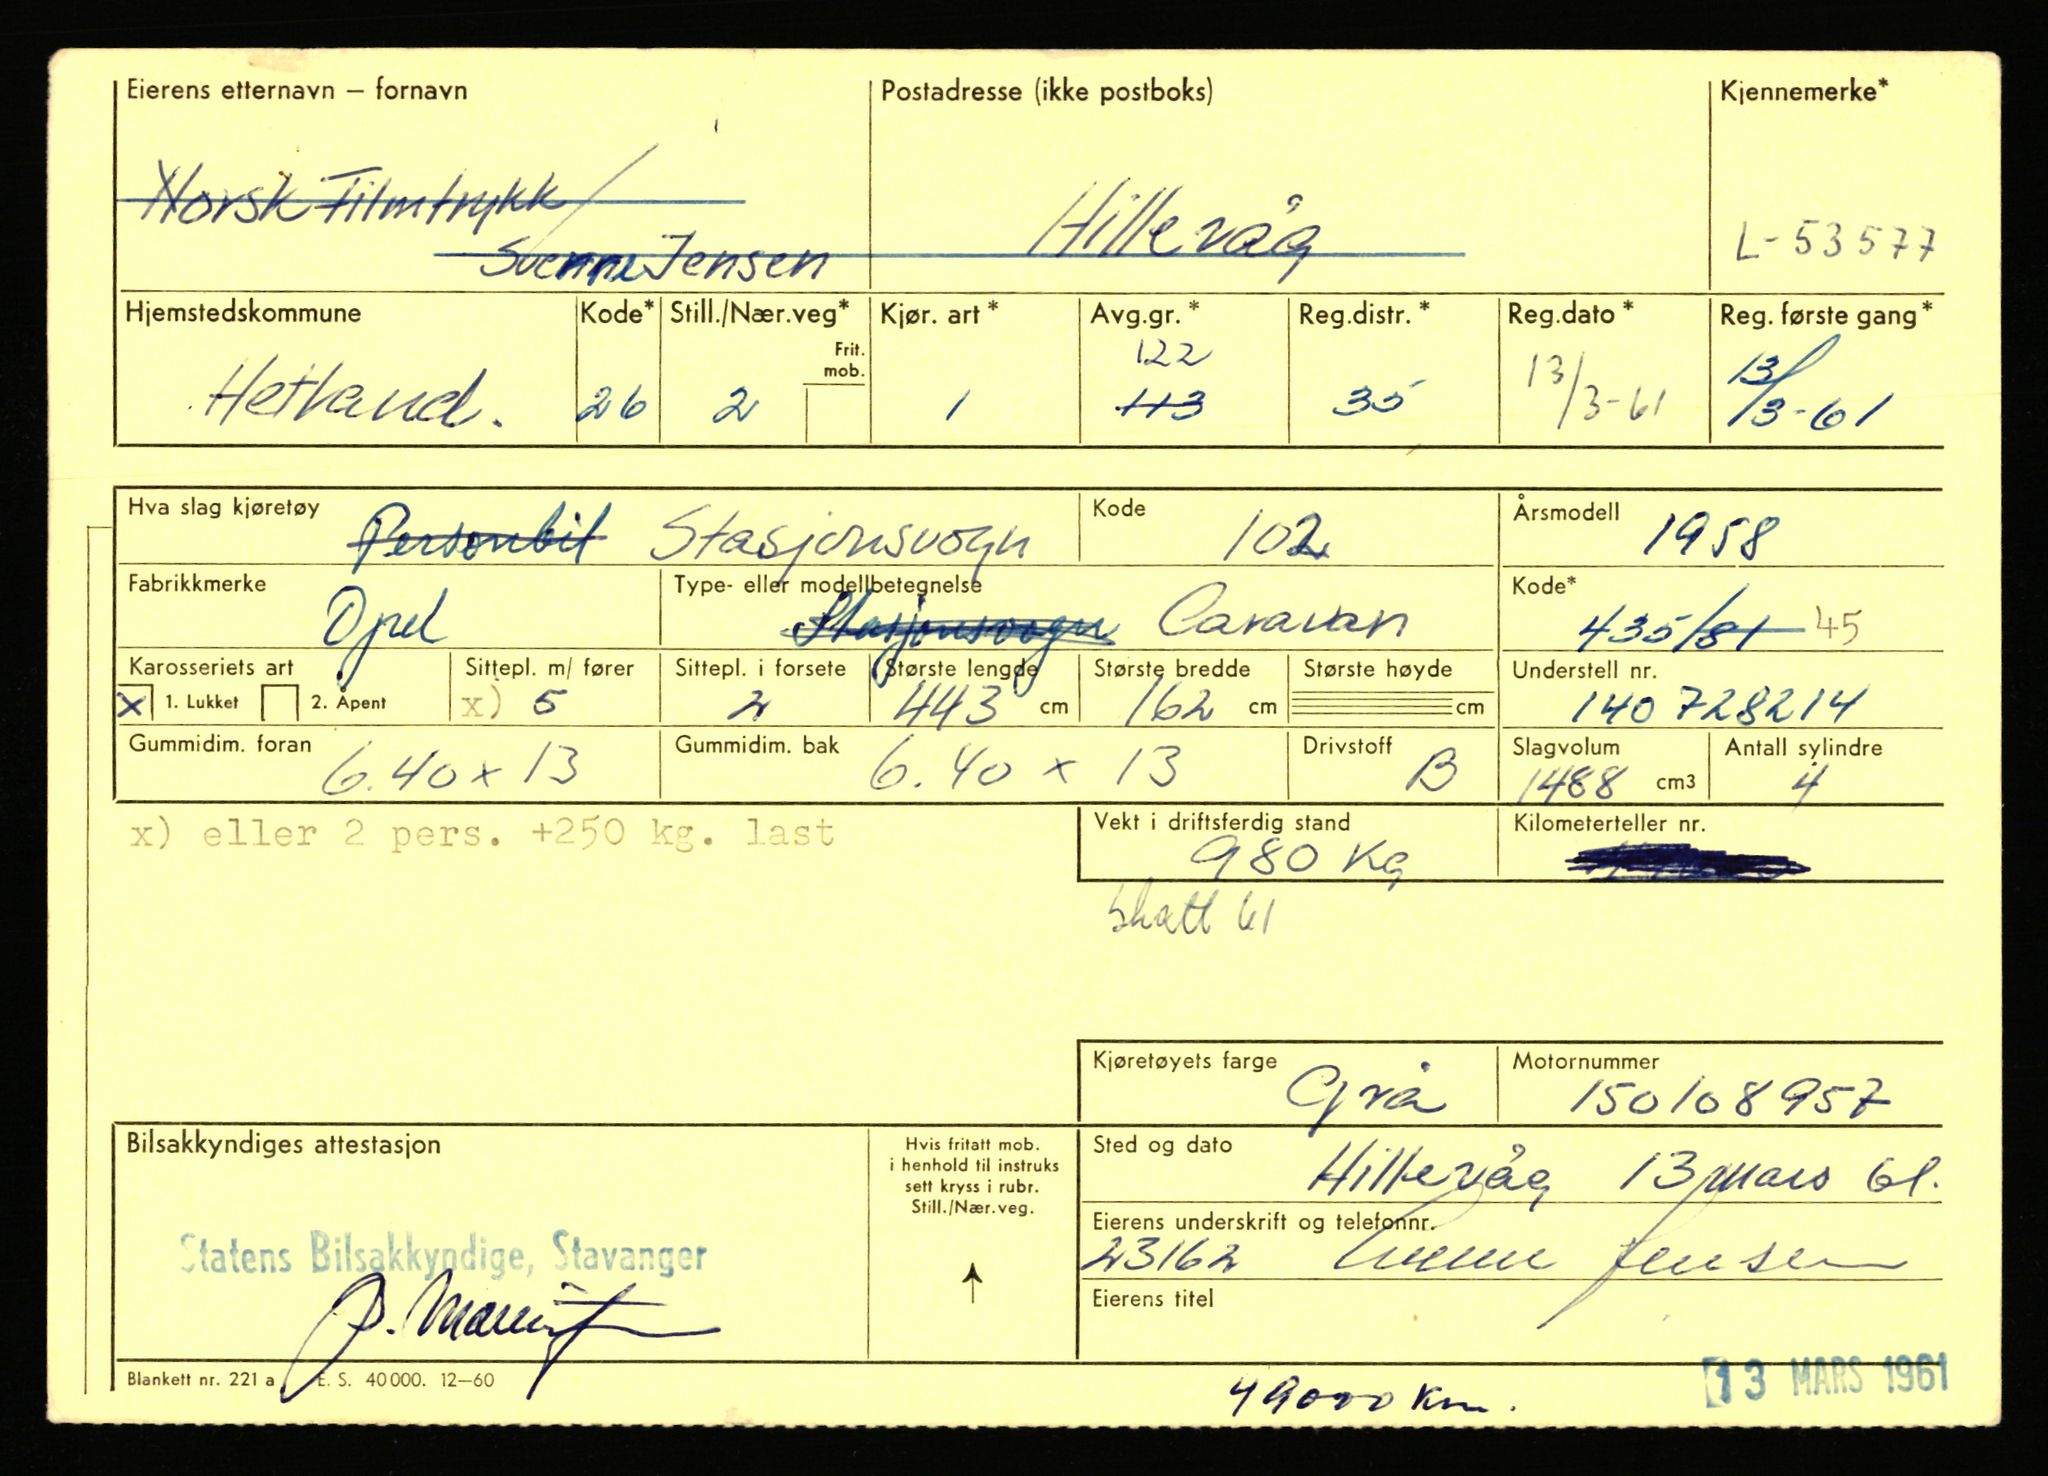 Eierens etternavn – fornavn Postadresse (ikke postboks) Kjennemerke*
Norsk Filmtrykk/
Svenne Jensen Hillevåg L-53577
Hjemstedskommune Kode* Still./Nær.veg* Kjør. art* Avg.gr.* Reg.distr.* Reg.dato* Reg. første gang*
Frit. mob. 122
Hetland. 26 2 1 113 35 13/3-61 13/3-61
Hva slag kjøretøy Personbil Stasjonsvogn Kode 102 Årsmodell 1958
Fabrikkmerke Opel Type- eller modellbetegnelse Stasjonsvogn Caravan Kode* 435/81 45
Karosseriets art Sittepl. m/ fører Sittepl. i forsete Største lengde Største bredde Største høyde Understell nr.
x 1. Lukket 2. Åpent x) 5 2 443 cm 162 cm cm 140 728214
Gummidim. foran Gummidim. bak Drivstoff Slagvolum Antall sylindre
6.40 x 13 6.40 x 13 B 1488 cm3 4
x) eller 2 pers. +250 kg. last Vekt i driftsferdig stand Kilometerteller nr.
980 Kg
Skatt 61
Kjøretøyets farge Motornummer
Grå 150108957
Bilsakkyndiges attestasjon
Hvis fritatt mob.
i henhold til instruks
sett kryss i rubr.
Still./Nær.veg.
Sted og dato
Hillevåg 13 mars 61.
Eierens underskrift og telefonnr.
23162 Svenne Jensen
Statens Bilsakkyndige, Stavanger
Eierens titel
Blankett nr. 221 a E. S. 40000. 12–60
49000 Km.
13 MARS 1961